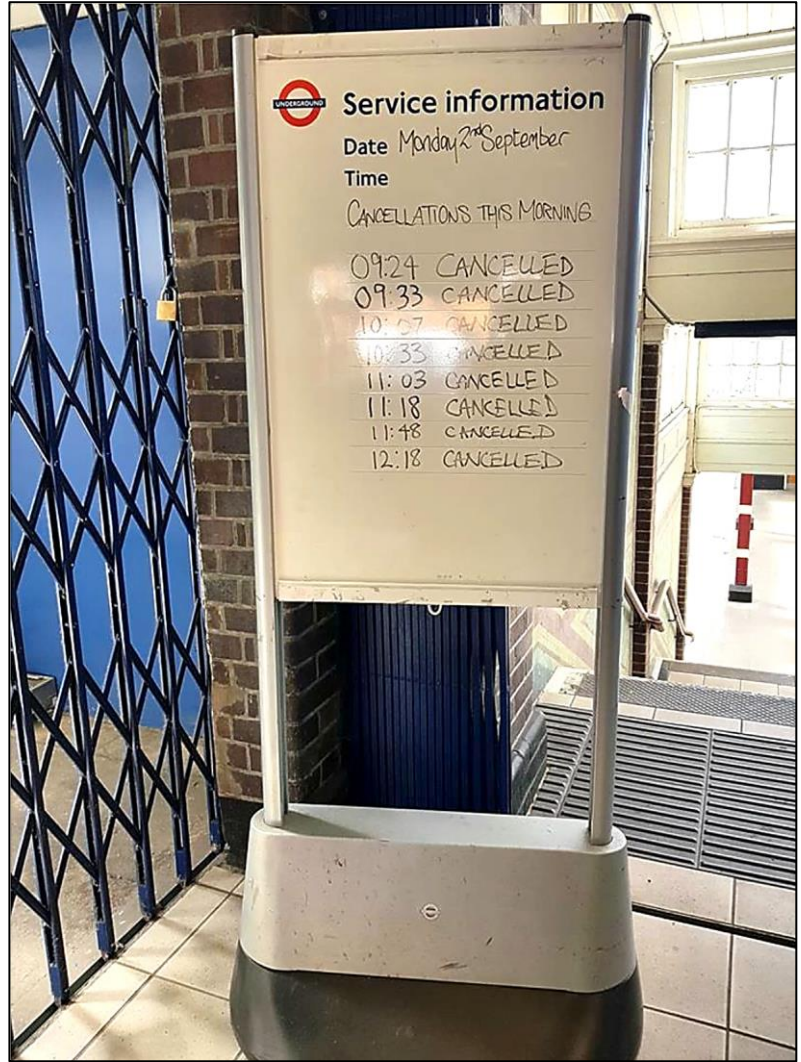 UNDERGROUND
Service information
Date Monday 2nd September
Time
CANCELLATIONS THIS MORNING
09:24 CANCELLED
09:33 CANCELLED
10:07 CANCELLED
10:33 CANCELLED
11:03 CANCELLED
11:18 CANCELLED
11:48 CANCELLED
12:18 CANCELLED